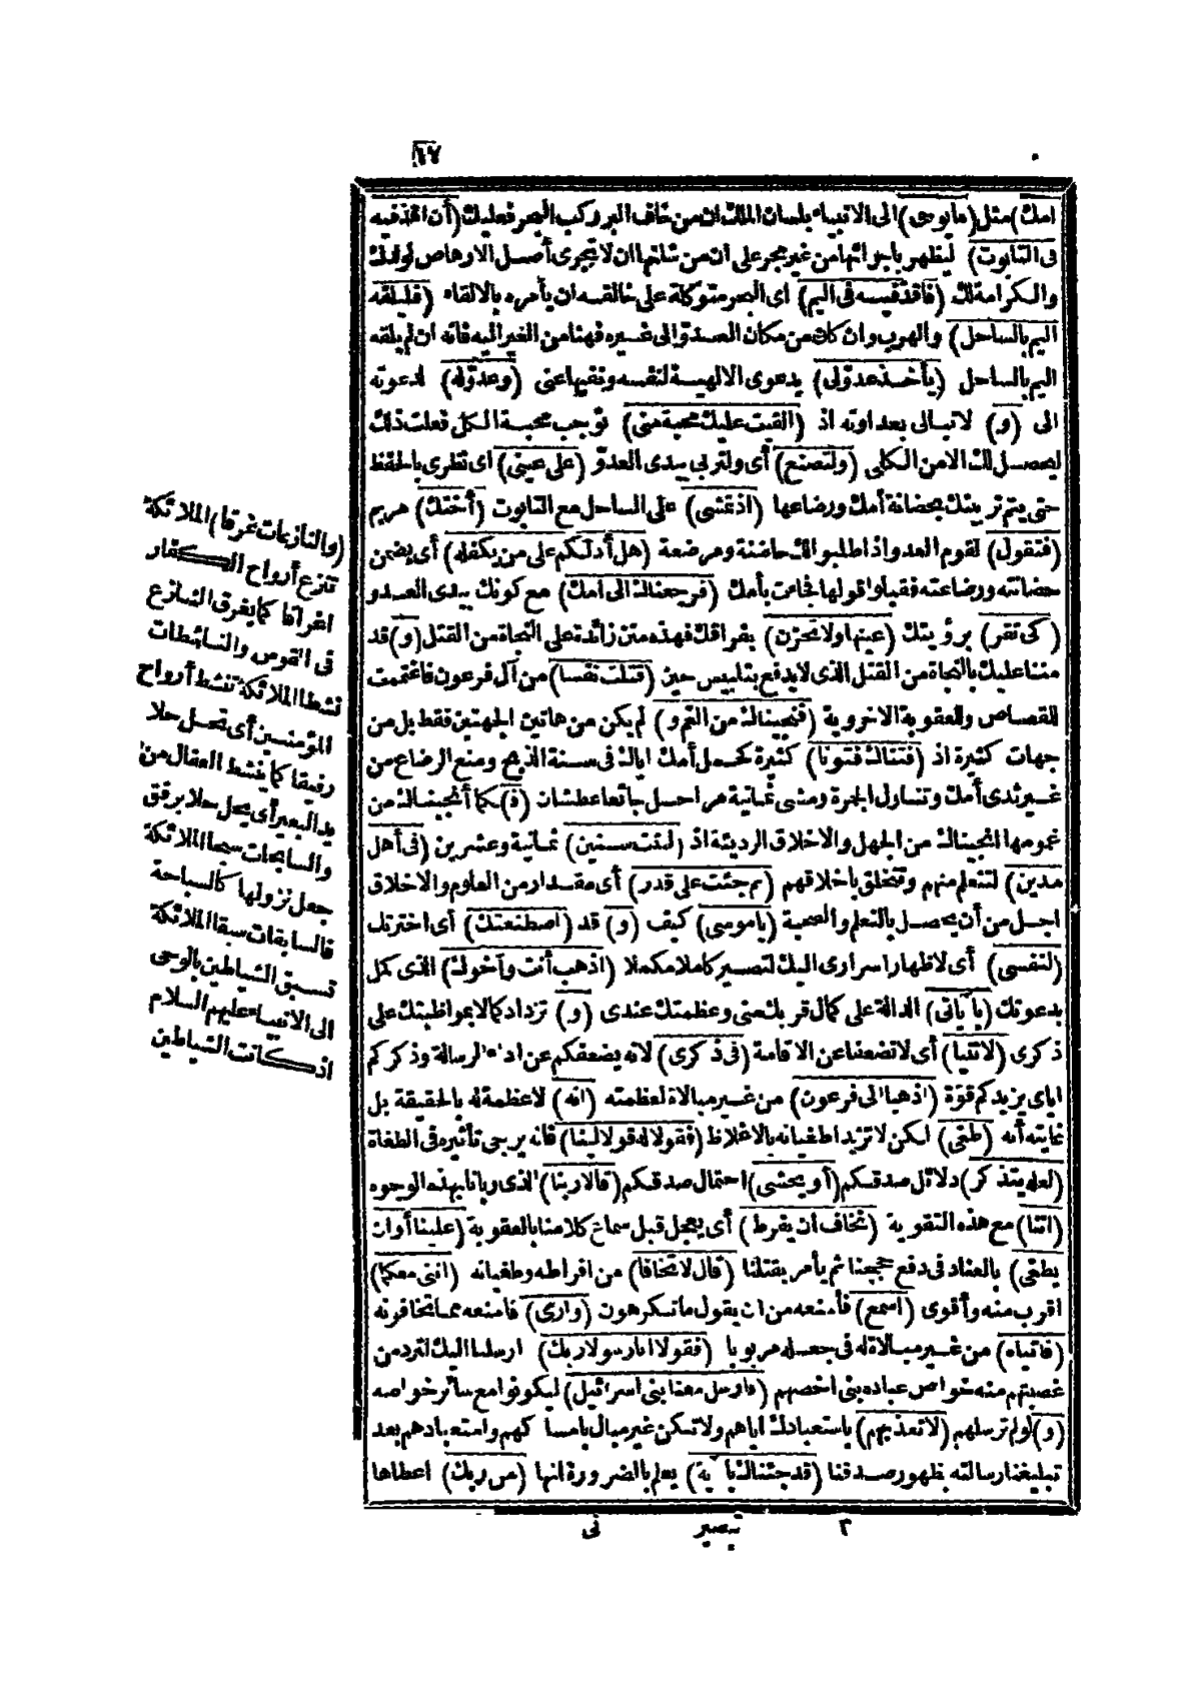 ١٧
امك) مثل (ما يوحى) الى الانبياء بلسان الملك ان من خاف البر ركب البحر فعليك (أن اقذفيه
فى التابوت) ليظهر باجرائها من غير مجر على ان من سلم ان لا تجرى أصل الارهاص لولدك
والكرامة لك (فاقذفيه فى اليم) اى البحر متوكلة على خالقه ان يأمره بالالقاء (فليلقه
اليم بالساحل) والهرب وان كان من مكان العدو الى غيره فهنا من الغير اليه فانه ان لم يلقه
اليم بالساحل (يأخذه عدو لى) بدعوى الالهية لنفسه ونفيها عنى (وعدو له) لدعوته
الى (و) لا تبالى بعداوته اذ (القيت عليك محبة منى) توجب محبة الكل فعلت ذلك
ليحصل لك الامن الكلى (ولتصنع) أى ولتربى بيدى العدو (على عينى) اى نظرى بالحفظ
حتى يتم تربيتك بحضانة أمك ورضاعها (اذ تمشى) على الساحل مع التابوت (أختك) مريم
(فتقول) لقوم العدو اذ اطلبوا لك حاضنة ومرضعة (هل أدلكم على من يكفله) أى يضمن
حضانته ورضاعته فقبلوا قولها فجاءت بأمك (فرجعناك الى امك) مع كونك بيدى العدو
(كى تقر) برؤيتك (عينها ولا تحزن) بفراقك فهذه منن زائدة على النجاة من القتل (و) قد
مننا عليك بالنجاة من القتل الذى لا يدفع بتلبيس حين (قتلت نفسا) من آل فرعون فاغتممت
للقصاص والعقوبة الاخروية (فنجيناك من الغم و) لم يكن من هاتين الجهتين فقط بل من
جهات كثيرة اذ (فتناك فتونا) كثيرة كحمل أمك اياك فى سنة الذبح ومنع الرضاع من
غير ثدى أمك وتناول الجمرة ومشى ثمانية مراحل جائعا عطشان (و) كما أنجيناك من
غمومها انجيناك من الجهل والاخلاق الرديئة اذ (لبثت سنين) ثمانية وعشرين (فى أهل
مدين) لتتعلم منهم وتتخلق باخلاقهم (ثم جئت على قدر) أى مقدار من العلوم والاخلاق
اجل من أن يحصل بالتعلم والصحبة (يا موسى) كيف (و) قد (اصطنعتك) أى اخترتك
(لنفسى) أى لاظهار اسرارى اليك لتصير كاملا مكملا (اذهب أنت وأخوك) الذى كمل
بدعوتك (بآياتى) الدالة على كمال قربك منى وعظمتك عندى (و) تزداد كمالا بمواظبتك على
ذكرى (لا تنيا) أى لا تضعفا عن الاقامة (فى ذكرى) لانه يضعفكم عن اداء الرسالة وذكركم
اياى يزيدكم قوة (اذهبا الى فرعون) من غير مبالاة لعظمته (انه) لا عظمة له بالحقيقة بل
غايته أنه (طغى) لكن لا تزيدا طغيانه بالاغلاظ (فقولا له قولا لينا) فانه يرجى تأثيره فى الطغاة
(لعله يتذكر) دلائل صدقكم (أو يخشى) احتمال صدقكم (قالا ربنا) الذى ربانا بهذه الوجوه
(اننا) مع هذه التقوية (نخاف ان يفرط) أى يعجل قبل سماع كلامنا بالعقوبة (علينا أو ان
يطغى) بالعناد فى دفع حججنا ثم يأمر بقتلنا (قال لا تخافا) من افراطه وطغيانه (اننى معكما)
اقرب منه وأقوى (اسمع) فأمنعه من ان يقول ما تكرهون (وارى) فامنعه مما تخافونه
(فاتياه) من غير مبالاة له فى جعله مربوبا (فقولا انا رسولا ربك) ارسلنا اليك لترد من
غصبتهم منه خواص عباده بنى اخصهم (فارسل معنا بنى اسرائيل) ليكونوا مع سائر خواصه
(و) لو لم ترسلهم (لا تعذبهم) باستعبادك اياهم ولا تكن غير مبال بامساكهم واستعبادهم بعد
تبليغنا رسالته بظهور صدقنا (قد جئناك بآية) يعلم بالضرورة انها (من ربك) اعطاها
٣ تبصير نى
(والنازعات غرقا) الملائكة
تنزع أرواح الكفار
اغراقا كما يغرق النازع
فى القوس والناشطات
نشطا الملائكة تنشط أرواح
المؤمنين أى تحل حلا
رفيقا كما ينشط العقال من
يد البعير أى يحل حلا برفق
والسابحات سبحا الملائكة
جعل نزولها كالسباحة
فالسابقات سبقا الملائكة
تسبق الشياطين بالوحى
الى الانبياء عليهم السلام
اذ كانت الشياطين